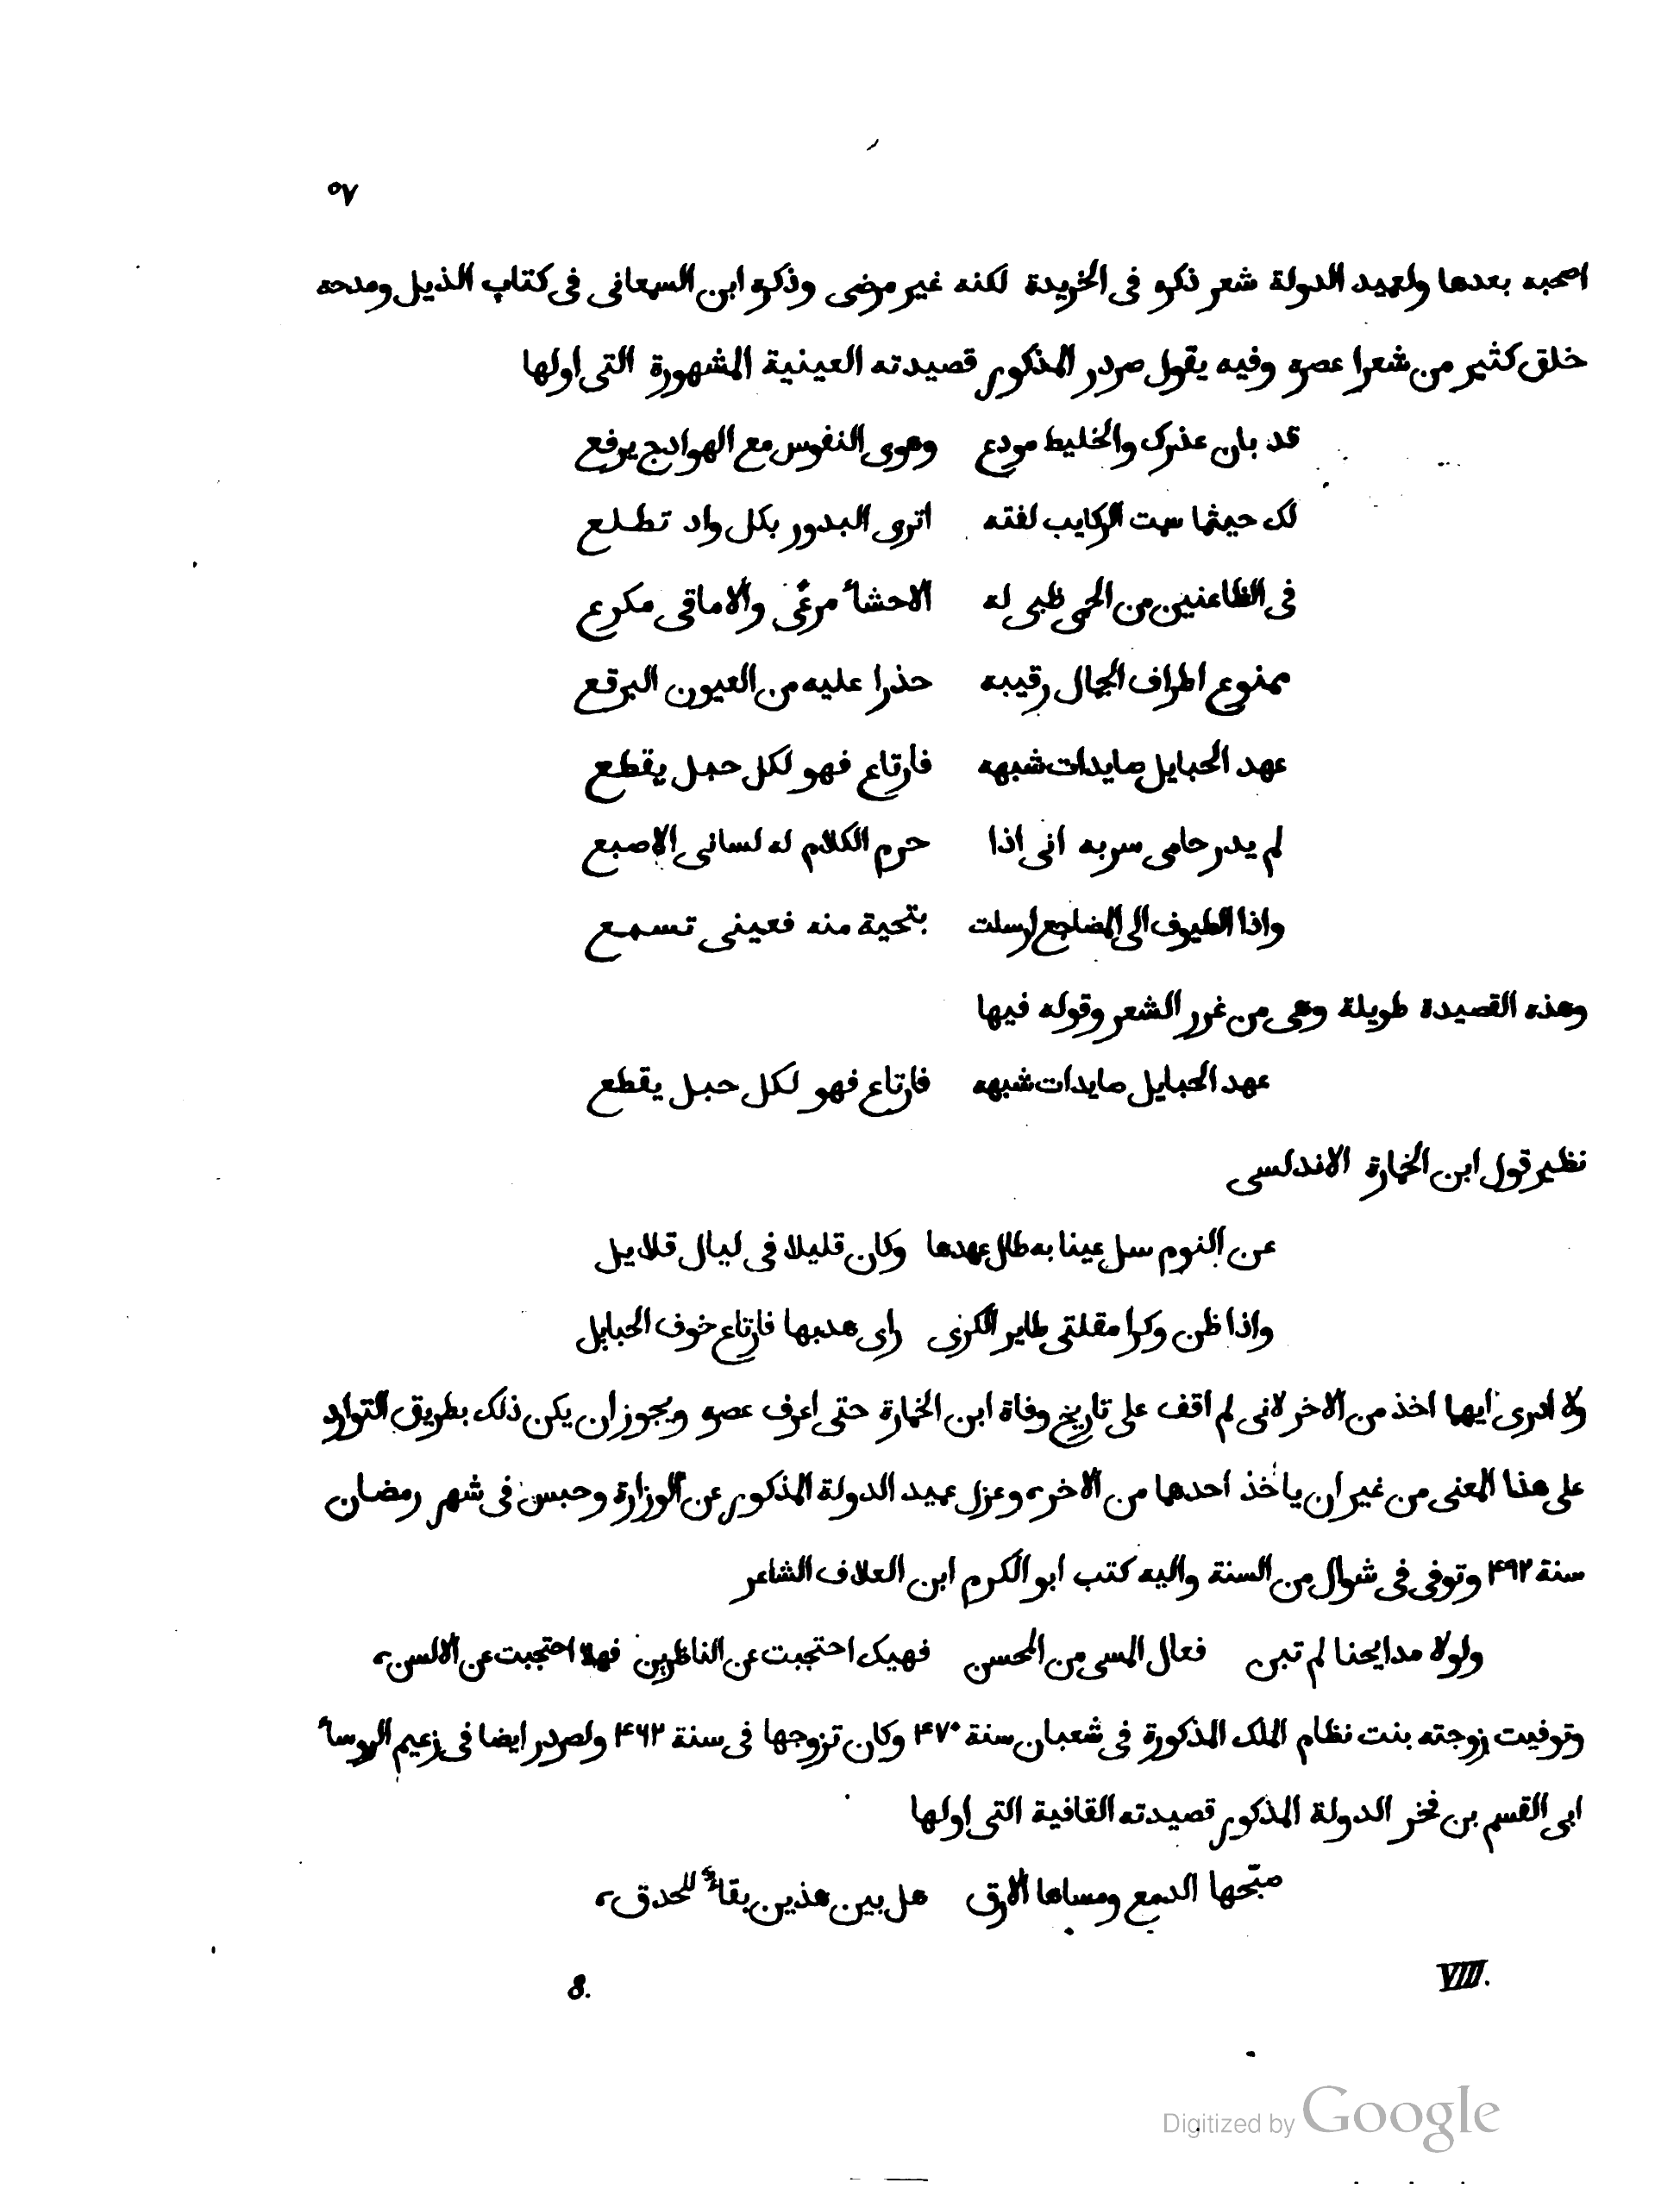 ٥٧
اصحبه بعدها ولعميد الدولة شعر ذكره فى الخريدة لكنه غير مرضى وذكره ابن السمعانى فى كتاب الذيل ومدحه
خلق كثير من شعرا عصره وفيه يقول صردر المذكور قصيدته العينية المشهورة التى اولها
قد بان عذرك والخليط مودع وهوى النفوس مع الهوادج يرفع
لك حيثما سمت الركايب لفته اترى البدور بكل واد تطلع
فى الظاعنين من الحمى ظبى له الاحشاء مرعًى والاماقى مكرع
ممنوع اطراف الجمال رقيبه حذرا عليه من العيون البرقع
عهد الحبايل صايدات شبهه فارتاع فهو لكل حبل يقطع
لم يدر حامى سربه انى اذا حرم الكلام له لسانى الاصبع
واذا الطيوف الى المضاجع ارسلت بتحية منه فعينى تسمع
وهذه القصيدة طويلة وهى من غرر الشعر وقوله فيها
عهد الحبايل صايدات شبهه فارتاع فهو لكل حبل يقطع
نظير قول ابن الخمارة الاندلسى
عن النوم سل عينا به طال عهدها وكان قليلا فى ليال قلايل
واذا ظن وكرا مقلتى طاير الكرى راى هدبها فارتاع خوف الحبايل
ولا ادرى ايهما اخذ من الاخر لانى لم اقف على تاريخ وفاة ابن الخمارة حتى اعرف عصره ويجوز ان يكن ذلك بطريق التوارد
على هذا المعنى من غير ان ياخذ احدهما من الاخر، وعزل عميد الدولة المذكور عن الوزارة وحبس فى شهر رمضان
سنة ۴۹۲ وتوفى فى شوال من السنة واليه كتب ابو الكرم ابن العلاف الشاعر
ولولا مدايحنا لم تبن فعال المسى من المحسن فهبك احتجبت عن الناظرين فهلا احتجبت عن الالسن،
وتوفيت زوجته بنت نظام الملك المذكورة فى شعبان سنة ۴۷۰ وكان تزوجها فى سنة ۴۶۲ ولصردر ايضا فى زعيم الروساء
ابى القسم بن فخر الدولة المذكور قصيدته القافية التى اولها
صبّحها الدمع ومساها الارق هل بين هذين بقاءٌ للحدق،
VIII. 8.
Digitized by Google